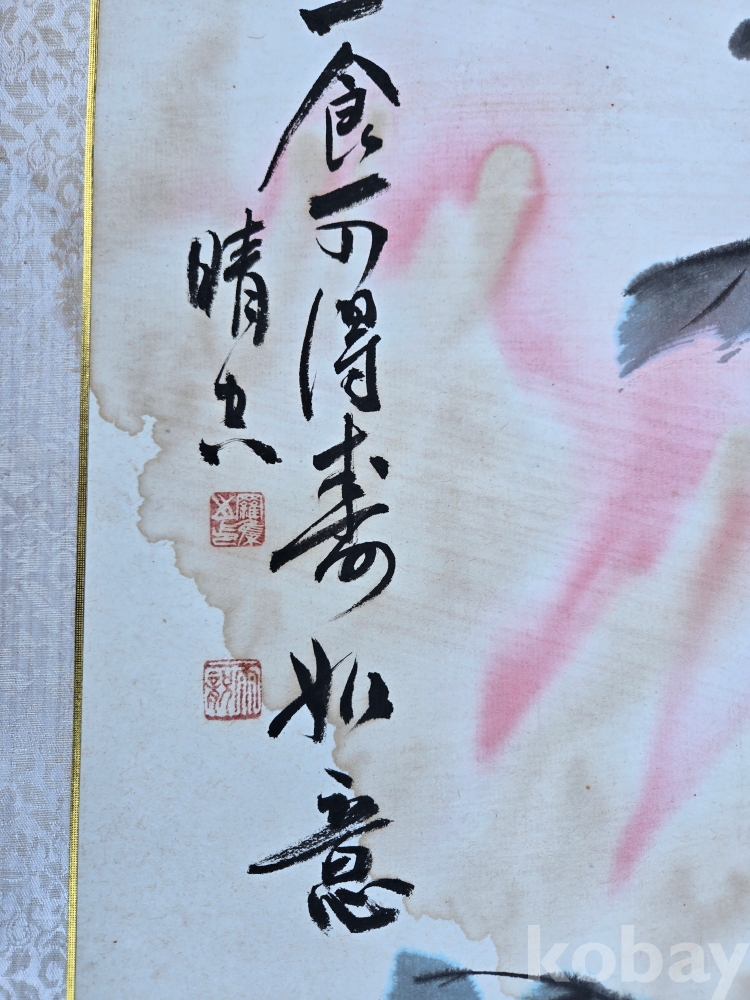 一食可得壽如意
晴
kobay